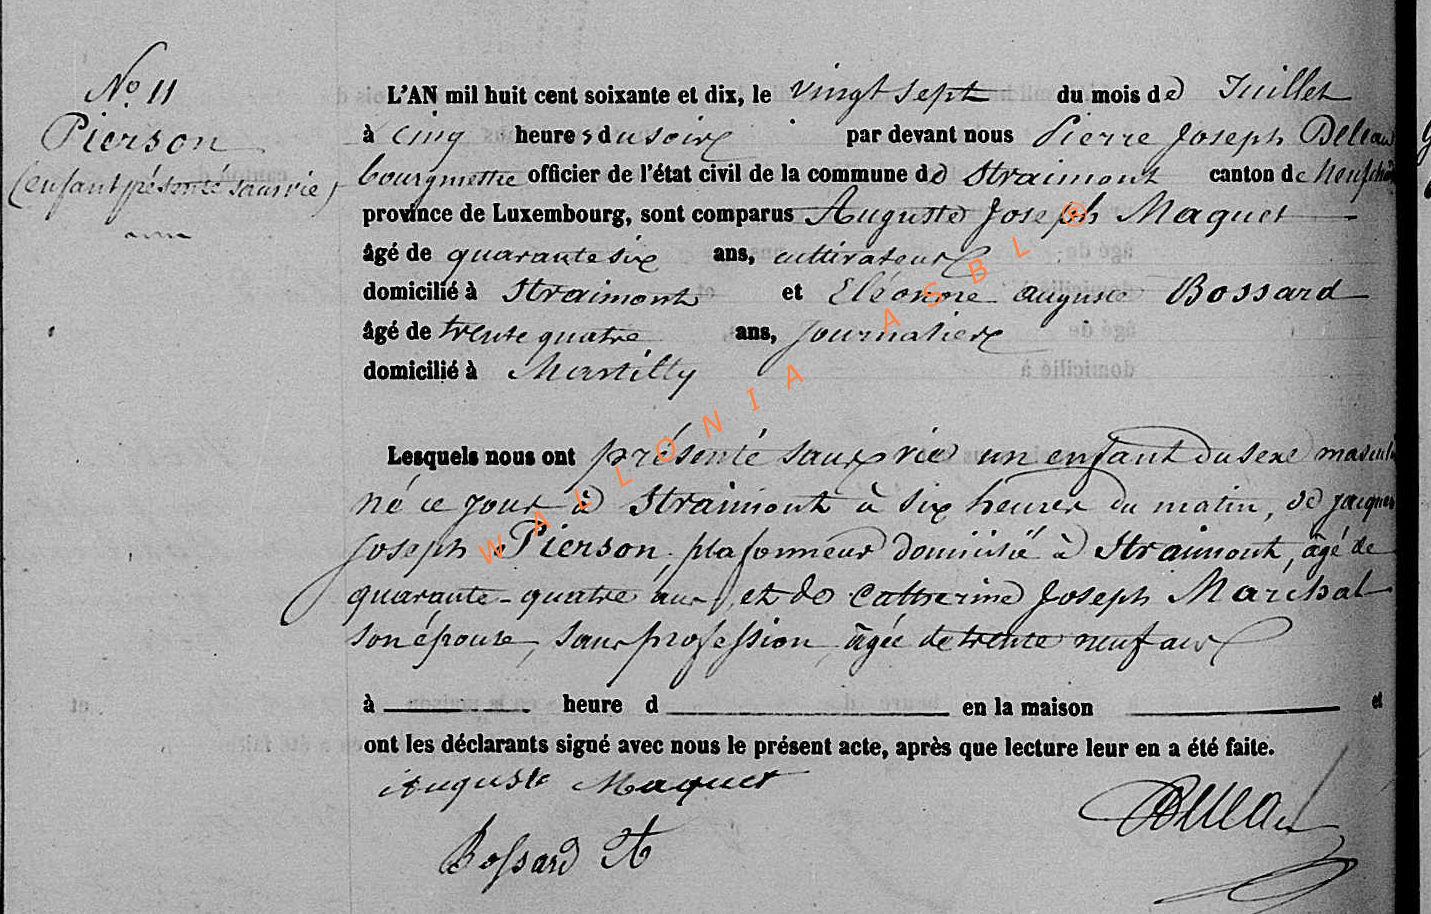 No. 11
Pierson
(enfant présenté sans vie)
L'AN mil huit cent soixante et dix, le vingt sept du mois de Juillet
à cinq heures du soir par devant nous Pierre Joseph
bourgmestre officier de l'état civil de la commune de Straimont canton de Neufchâ
province de Luxembourg, sont comparus Auguste Joseph Maquet
âgé de quarante six ans, cultivateur
domicilié à Straimont et Eléonore auguste Bossard
âgé de trente quatre ans, Journalier
domicilié à Martilly
Lesquels nous ont présenté sans vie un enfant du sexe masculi
né ce jour à Straimont à six heures du matin, de jacques
joseph Pierson, plafonneur domicilié à Straimont, âgé de
quarante-quatre ans, et de Catherine Joseph Maréchal
son épouse, sans profession, âgée de trente neuf ans
à heure d en la maison et
ont les déclarants signé avec nous le présent acte, après que lecture leur en a été faite.
Auguste Maquet
Bossard A
WALLONIA ASBL ®